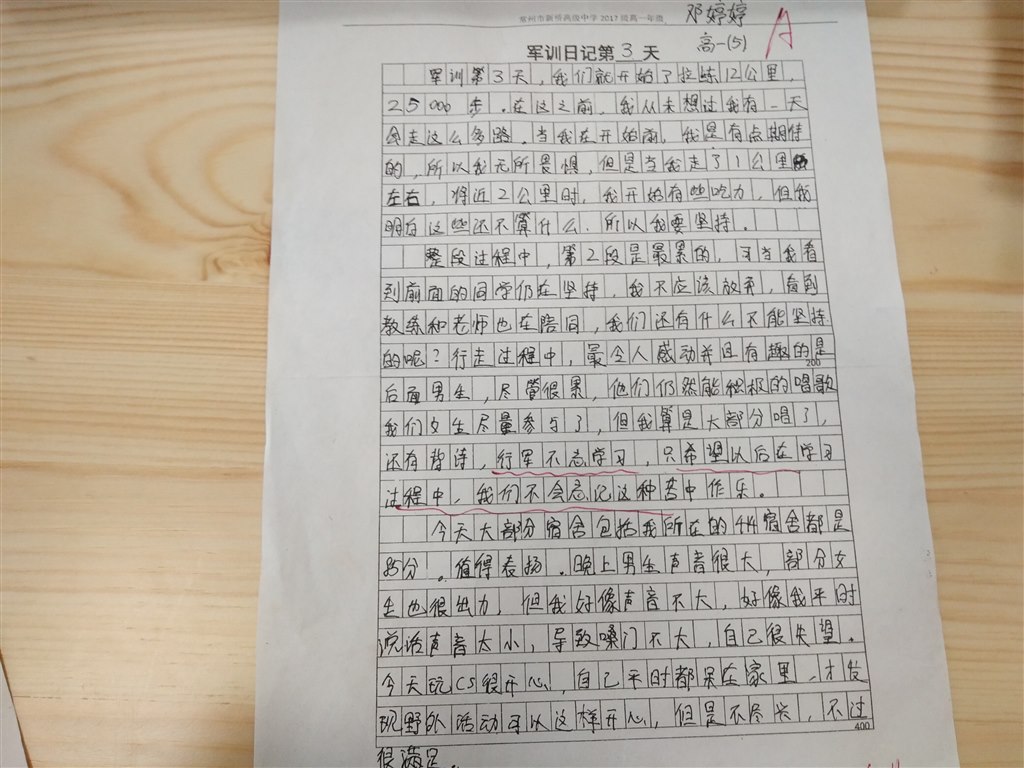 常州市新桥高级中学2017级高一年级
邓婷婷
高一(5)
A
军训日记第3天
军训第3天，我们就开始了拉练12公里，
25000步。在这之前，我从未想过我有一天
会走这么多路。当我在开始前，我是有点期待
的，所以我无所畏惧，但是当我走了1公里
左右，将近2公里时，我开始有些吃力，但我
明白这些还不算什么.所以我要坚持。
整段过程中，第2段是最累的，可当我看
到前面的同学仍在坚持，我不应该放弃，看到
教练和老师也在陪同，我们还有什么不能坚持
的呢？行走过程中，最令人感动并且有趣的是
200
后面男生，尽管很累，他们仍然能积极的唱歌
我们女生尽量参与了，但我算是大部分唱了，
还有背诗，行军不忘学习，只希望以后在学习
过程中，我们不会忘记这种苦中作乐。
今天大部分宿舍包括我所在的414宿舍都是
85分。值得表扬.晚上男生声音很大，部分女
生也很出力，但我好像声音不大，好像我平时
说话声音太小，导致嗓门不大，自己很失望。
今天玩CS很开心，自己平时都呆在家里，才发
现野外活动可以这样开心，但是不尽兴，不过
400
很满足。